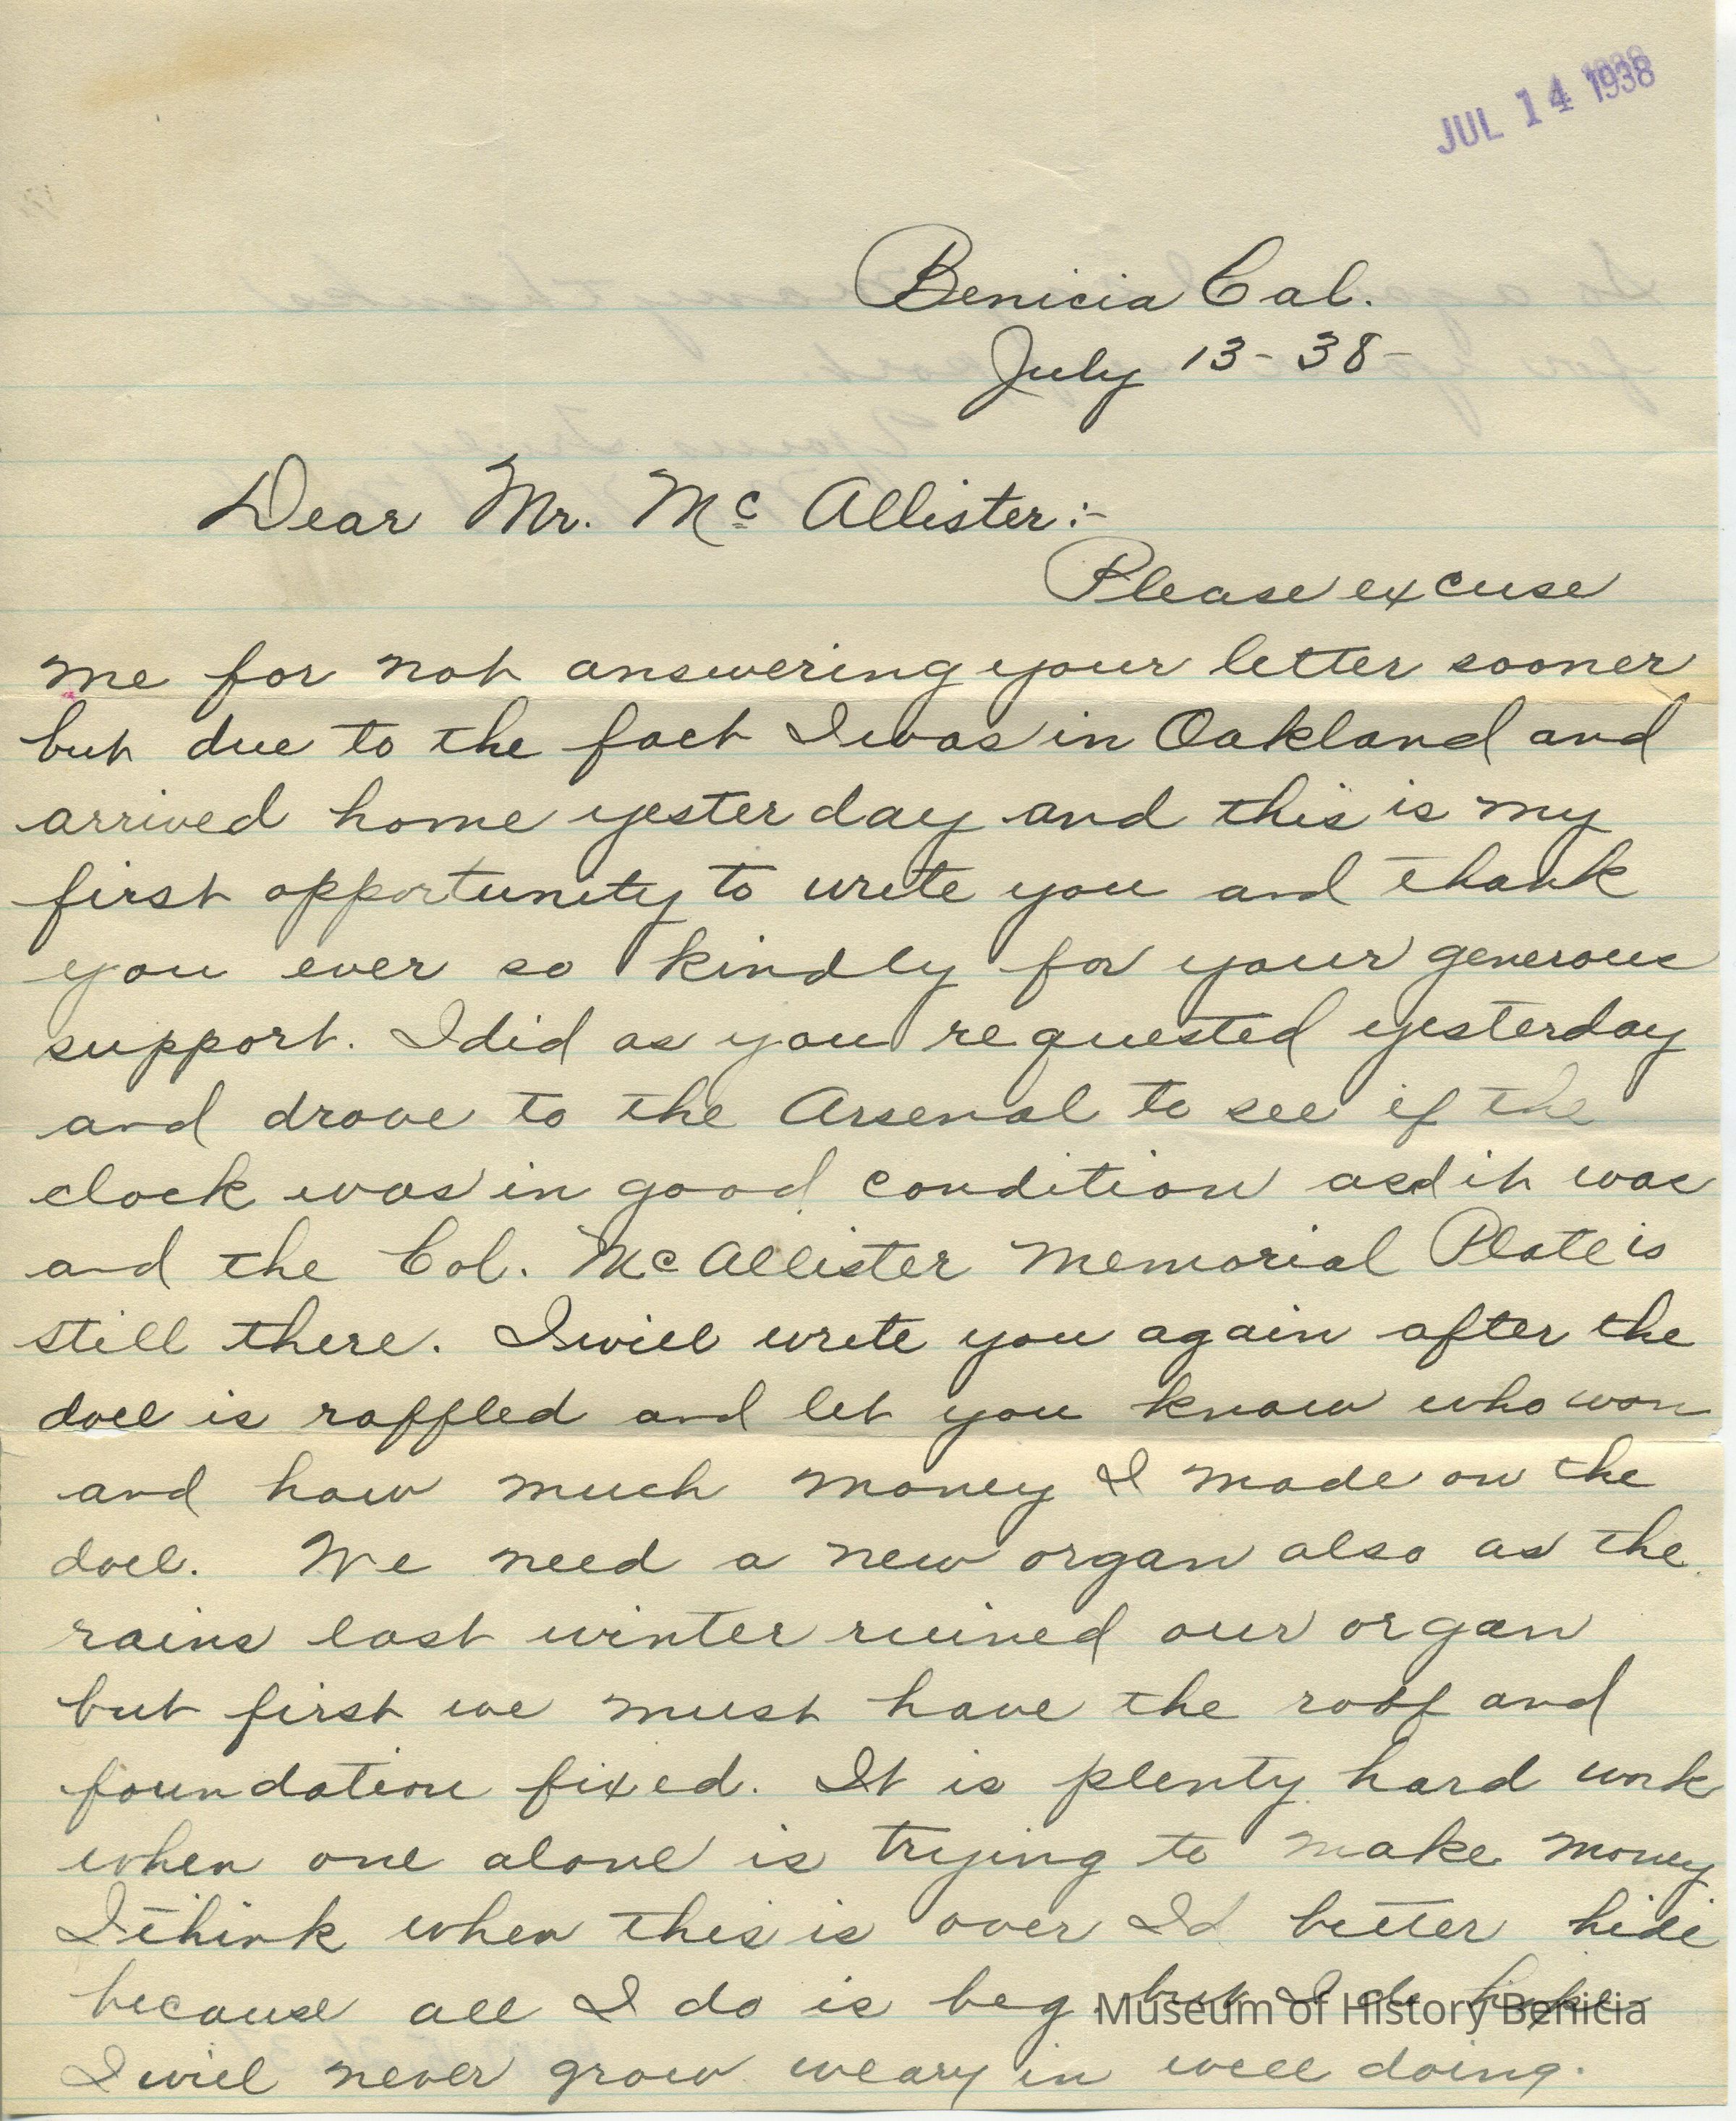 JUL 14 1938
Benicia Cal.
July 13-38-
Dear Mr. Mc Allister:-
Please excuse
me for not answering your letter sooner
but due to the fact I was in Oakland and
arrived home yesterday and this is my
first opportunity to write you and thank
you ever so kindly for your generous
support. I did as you requested yesterday
and drove to the Arsenal to see if the
clock was in good condition and it was
and the Col. McAllister Memorial Plate is
still there. I will write you again after the
doll is raffled and let you know who won
and how much money I made on the
doll. We need a new organ also as the
rains last winter ruined our organ
but first we must have the roof and
foundation fixed. It is plenty hard work
when one alone is trying to make money
I think when this is over Id better hide
because all I do is beg but I do hope
Museum of History Benicia
I will never grow weary in well doing.